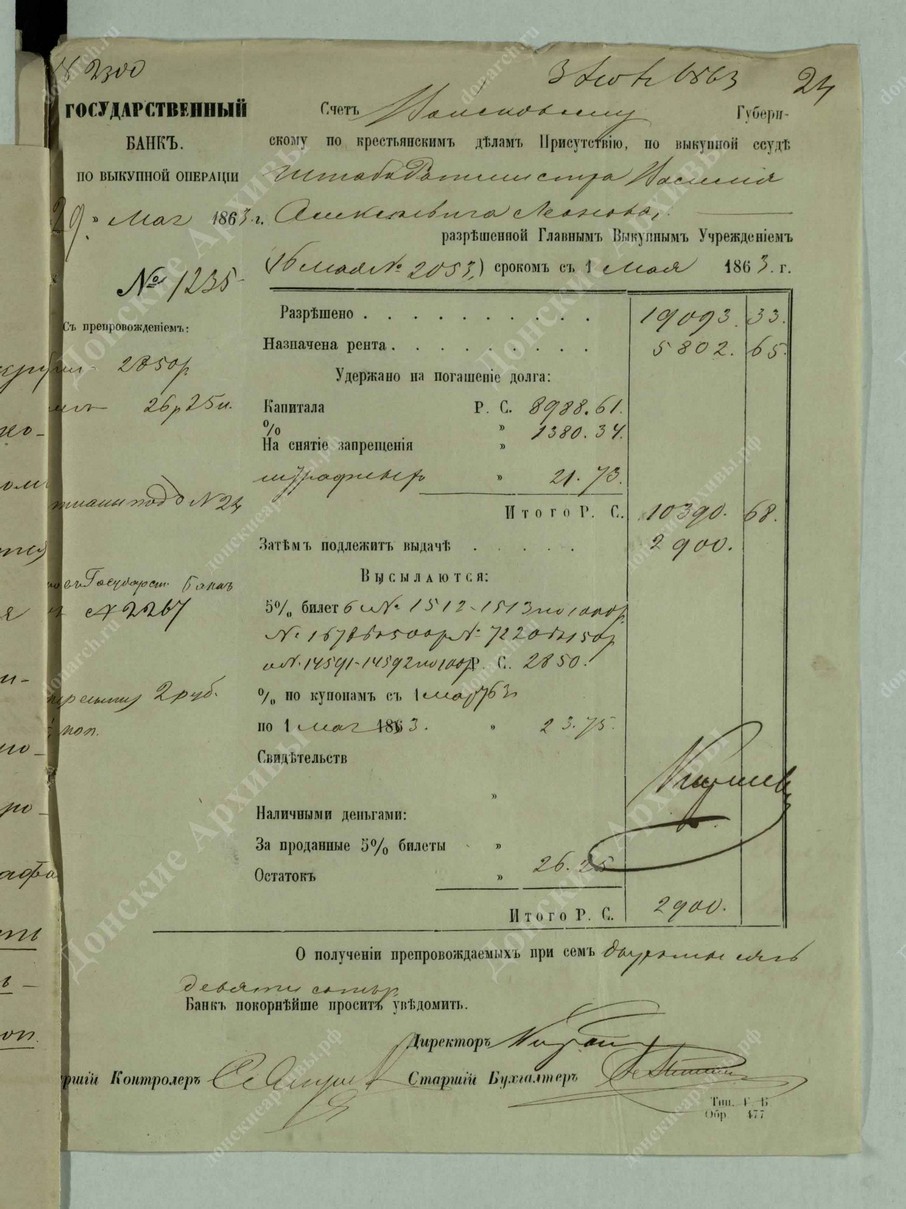 2300
3 1863 24
ГОСУДАРСТВЕННЫЙ
БАНКЪ.
ПО ВЫКУПНОЙ ОПЕРАЦІИ
29 » Мая 1863 г.
№ 1235
Съ препровожденіемъ:
2850р
26р 25к.
№ 24
Государст. Банк
№ 2267
2 руб.
коп.
Счетъ Войсковому Губерн-
скому по крестьянскимъ дѣламъ Присутствію, по выкупной ссудѣ
Штабъ Ротмистра Василія
Алексѣевича
разрѣшенной Главнымъ Выкупнымъ Учрежденіемъ
(16 Мая № 2053,) срокомъ съ 1 Мая 1863 г.
Разрѣшено . . . . . . . . . . 19093. 33.
Назначена рента . . . . . . . . . 5802. 65.
Удержано на погашеніе долга:
Капитала Р. С. 8988. 61.
% » 1380. 34.
На снятіе запрещенія »
штрафныхъ » 21. 73.
Итого Р. С. 10390. 68.
Затѣмъ подлежитъ выдачѣ . . . . . 2900.
Высылаются:
5% билет № 1512-1513 по 1000р
№ 1678 въ 500р № 7220 въ 150р
и № 14591-14592 по 100р Р. С. 2850.
% по купонамъ съ 1 63
по 1 Мая 1863. » 23. 75.
Свидѣтельствъ
»
Наличными деньгами:
За проданные 5% билеты »
Остатокъ » 26. 25
Итого Р. С. 2900.
О полученіи препровождаемыхъ при семъ
девяти сотъ
Банкъ покорнѣйше проситъ увѣдомить.
Директоръ
ршій Контролеръ Старшій Бухгалтеръ
Тип. Г. Б
Обр 477
Донские Архивы
донскиеархивы.рф
donarch.ru